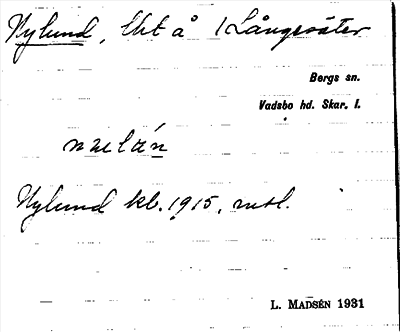 Nylund, lht å 1 Långesäter
Bergs sn.
Vadsbo hd. Skar. l.
nẙlán
Nylund kb. 1915, mtl.
L. MADSÉN 1931